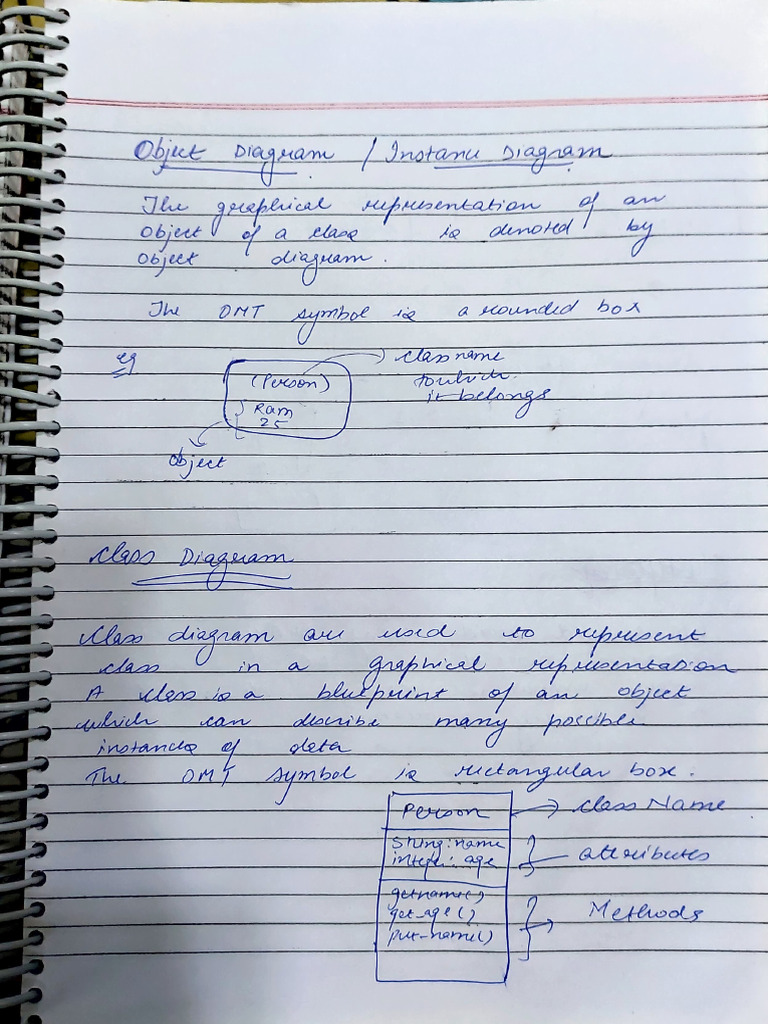 Object Diagram / Instance Diagram
The graphical representation of an
object of a class is denoted by
object diagram.
The OMT symbol is a rounded box
eg
(Person)
Ram
25
class name
to which
it belongs
object
Class Diagram
Class diagram are used to represent
class in a graphical representation
A class is a blueprint of an object
which can describe many possible
instance of data
The OMT symbol is rectangular box.
Person
class Name
String: name
integer: age
attributes
getname()
get-age()
put-name()
Methods